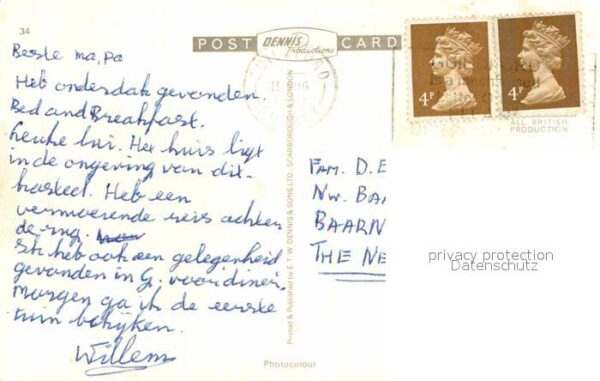 34
POST
DENNIS
Productions
CARD
Beste ma, pa
Heb onderdak gevonden.
Bed and Breakfast.
Leuke lui. Het huis ligt
in de omgeving van dit
kasteel. Heb een
vermoeiende reis achter
de rug.
Ik heb ook een gelegenheid
gevonden in G. voor diner.
Morgen ga ik de eerste
tuin bekijken.
Willem
Printed & Published by E. T. W. DENNIS & SONS LTD. SCARBOROUGH & LONDON
Photocolour
4P
4P
ALL BRITISH
PRODUCTION
FAM. D. E
NW. BA
BAARN
THE NE
privacy protection
Datenschutz